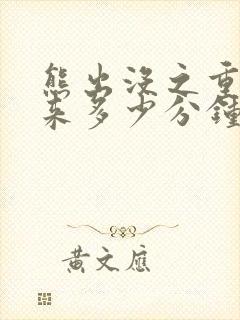 熊出没之重
来多少分鐘
黄文應